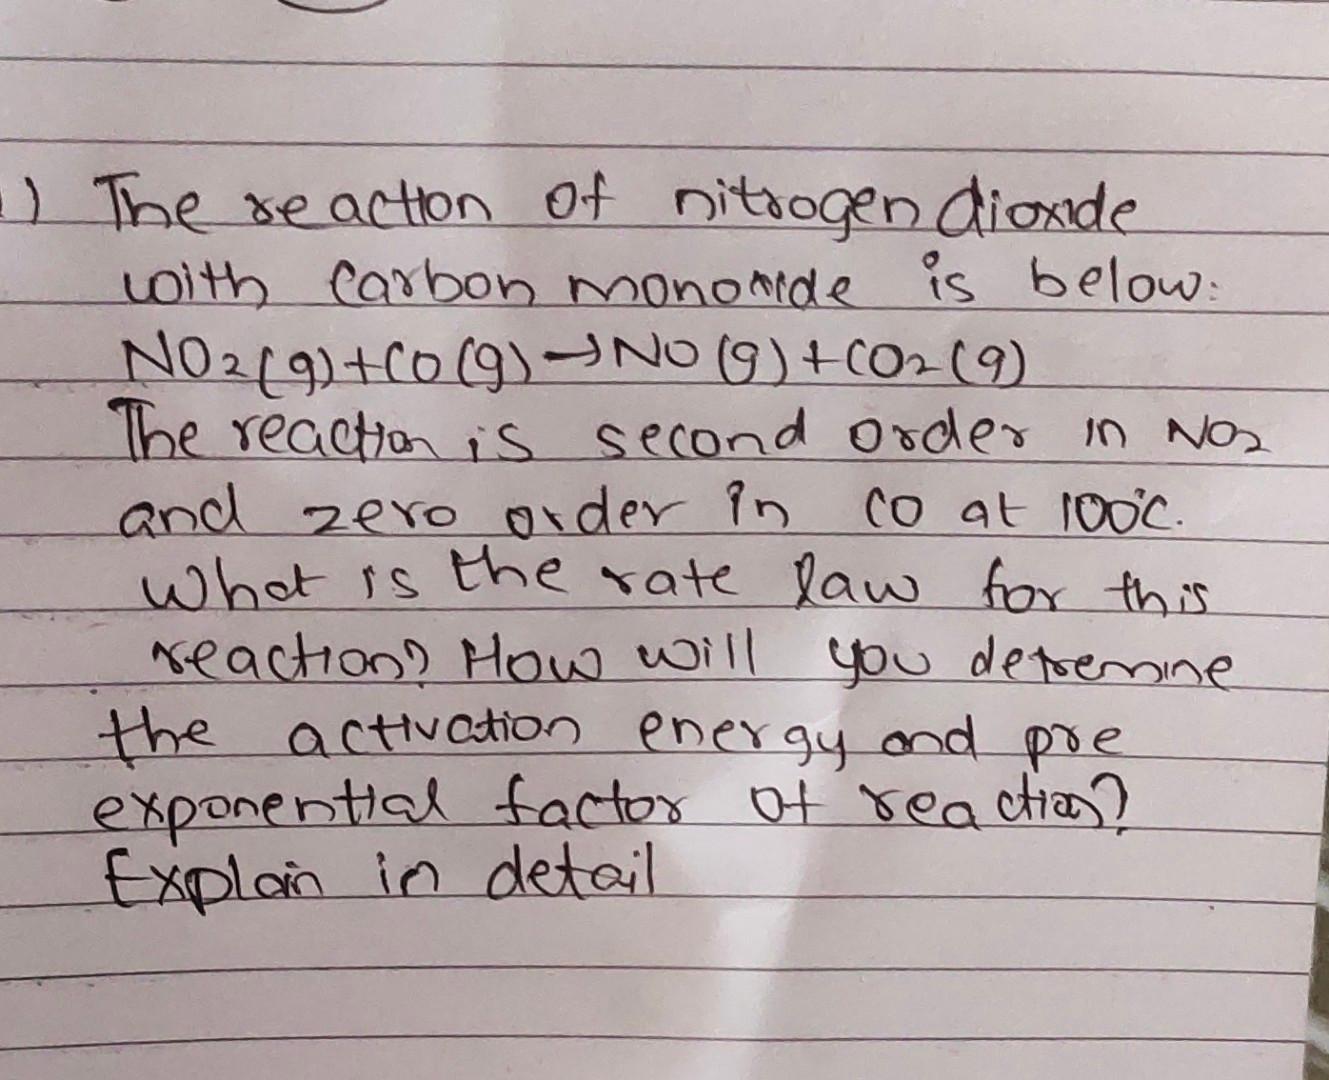 1) The reaction of nitrogen dioxide
with carbon monoxide is below:
NO2(g)+CO(g)→NO(g)+CO2(g)
The reaction is second order in NO2
and zero order in CO at 100°C.
What is the rate law for this
reaction? How will you detremine
the activation energy and pre
exponential factor of reaction?
Explain in detail